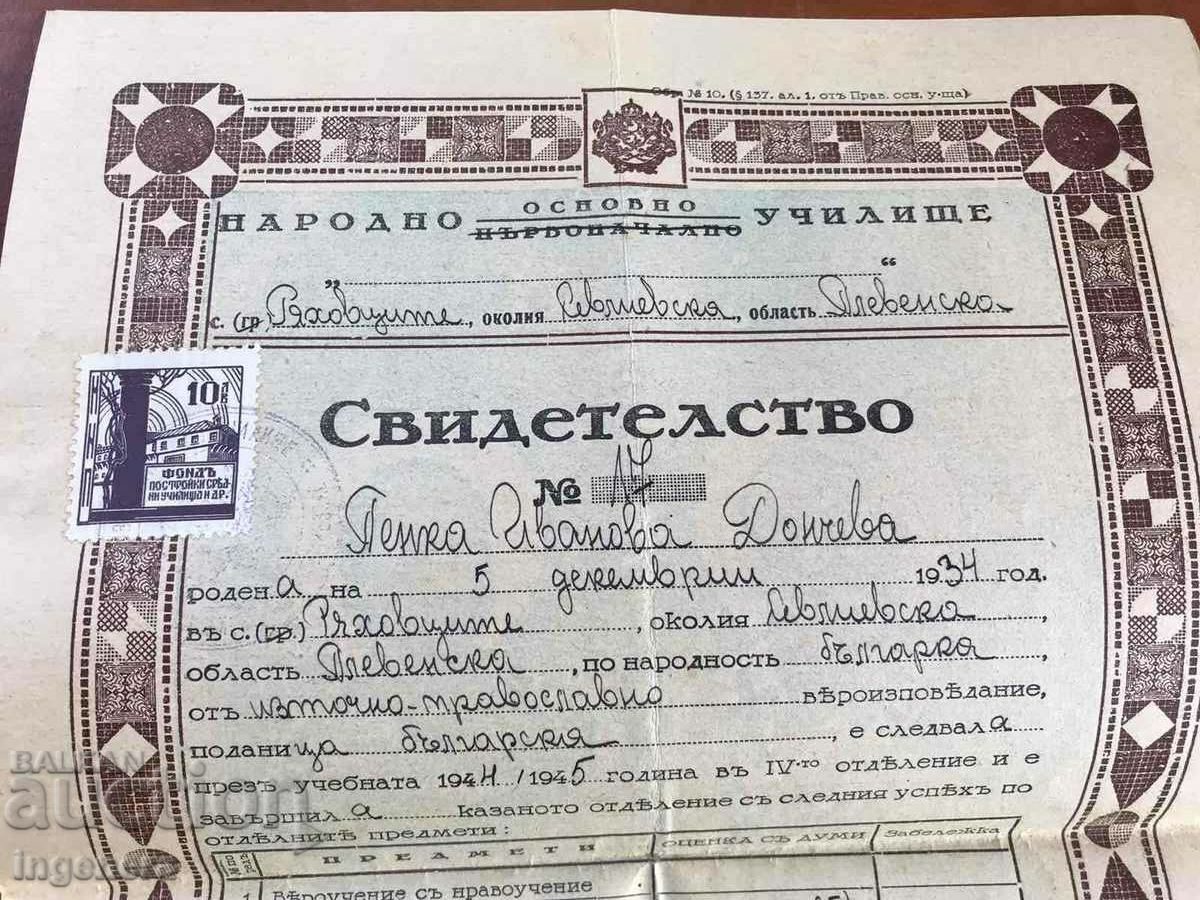 Обр. № 10. (§ 137. ал. 1, отъ Прав. осн. у-ща)
НАРОДНО ОСНОВНО ПЪРВОНАЧАЛНО УЧИЛИЩЕ
„ “
с. (гр.) Ряховците, околия Севлиевска, область Плевенска
Свидетелство
№ 17
Пенка Иванова Дончева
родена на 5 декемврий 1934 год.
въ с. (гр.) Ряховците, околия Севлиевска
область Плевенска, по народность българка,
отъ източно-православно вѣроизповѣдание,
поданица българска, е следвала
презъ учебната 1944/1945 година въ IV-то отдѣление и е
завършила казаното отдѣление съ следния успѣхъ по
отдѣлнитѣ предмети:
№ по редъ ПРЕДМЕТИ ОЦЕНКА СЪ ДУМИ Забележка
1 Вѣроучение съ нравоучение
10 ЛВ
ФОНДЪ
ПОСТРОЙКИ СРѢД-
НИ УЧИЛИЩА И ДР.
МНП
BALKAN
auction
ingenero